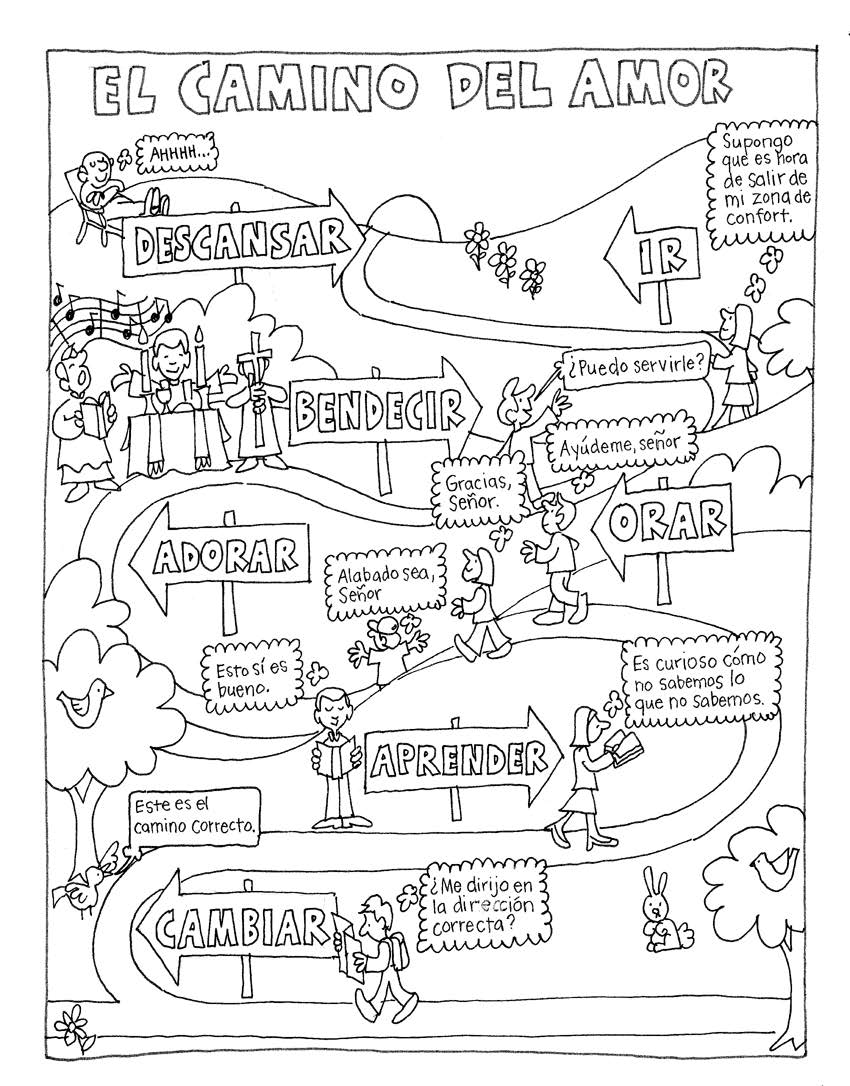 EL CAMINO DEL AMOR
AHHHH...
DESCANSAR
Supongo
que es hora
de salir de
mi zona de
confort.
IR
¿Puedo servirle?
BENDECIR
Ayúdeme, señor
Gracias,
Señor.
ORAR
ADORAR
Alabado sea,
Señor
Esto sí es
bueno.
Es curioso cómo
no sabemos lo
que no sabemos.
APRENDER
Este es el
camino correcto.
¿Me dirijo en
la dirección
correcta?
CAMBIAR